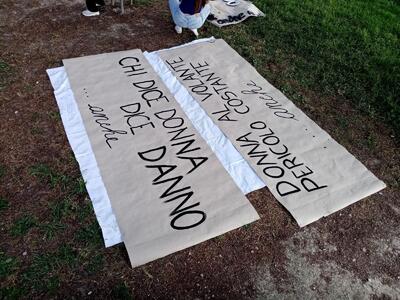 CHI DICE DONNA
DICE DANNO
... anche
DONNA AL VOLANTE
PERICOLO COSTANTE
anche ...